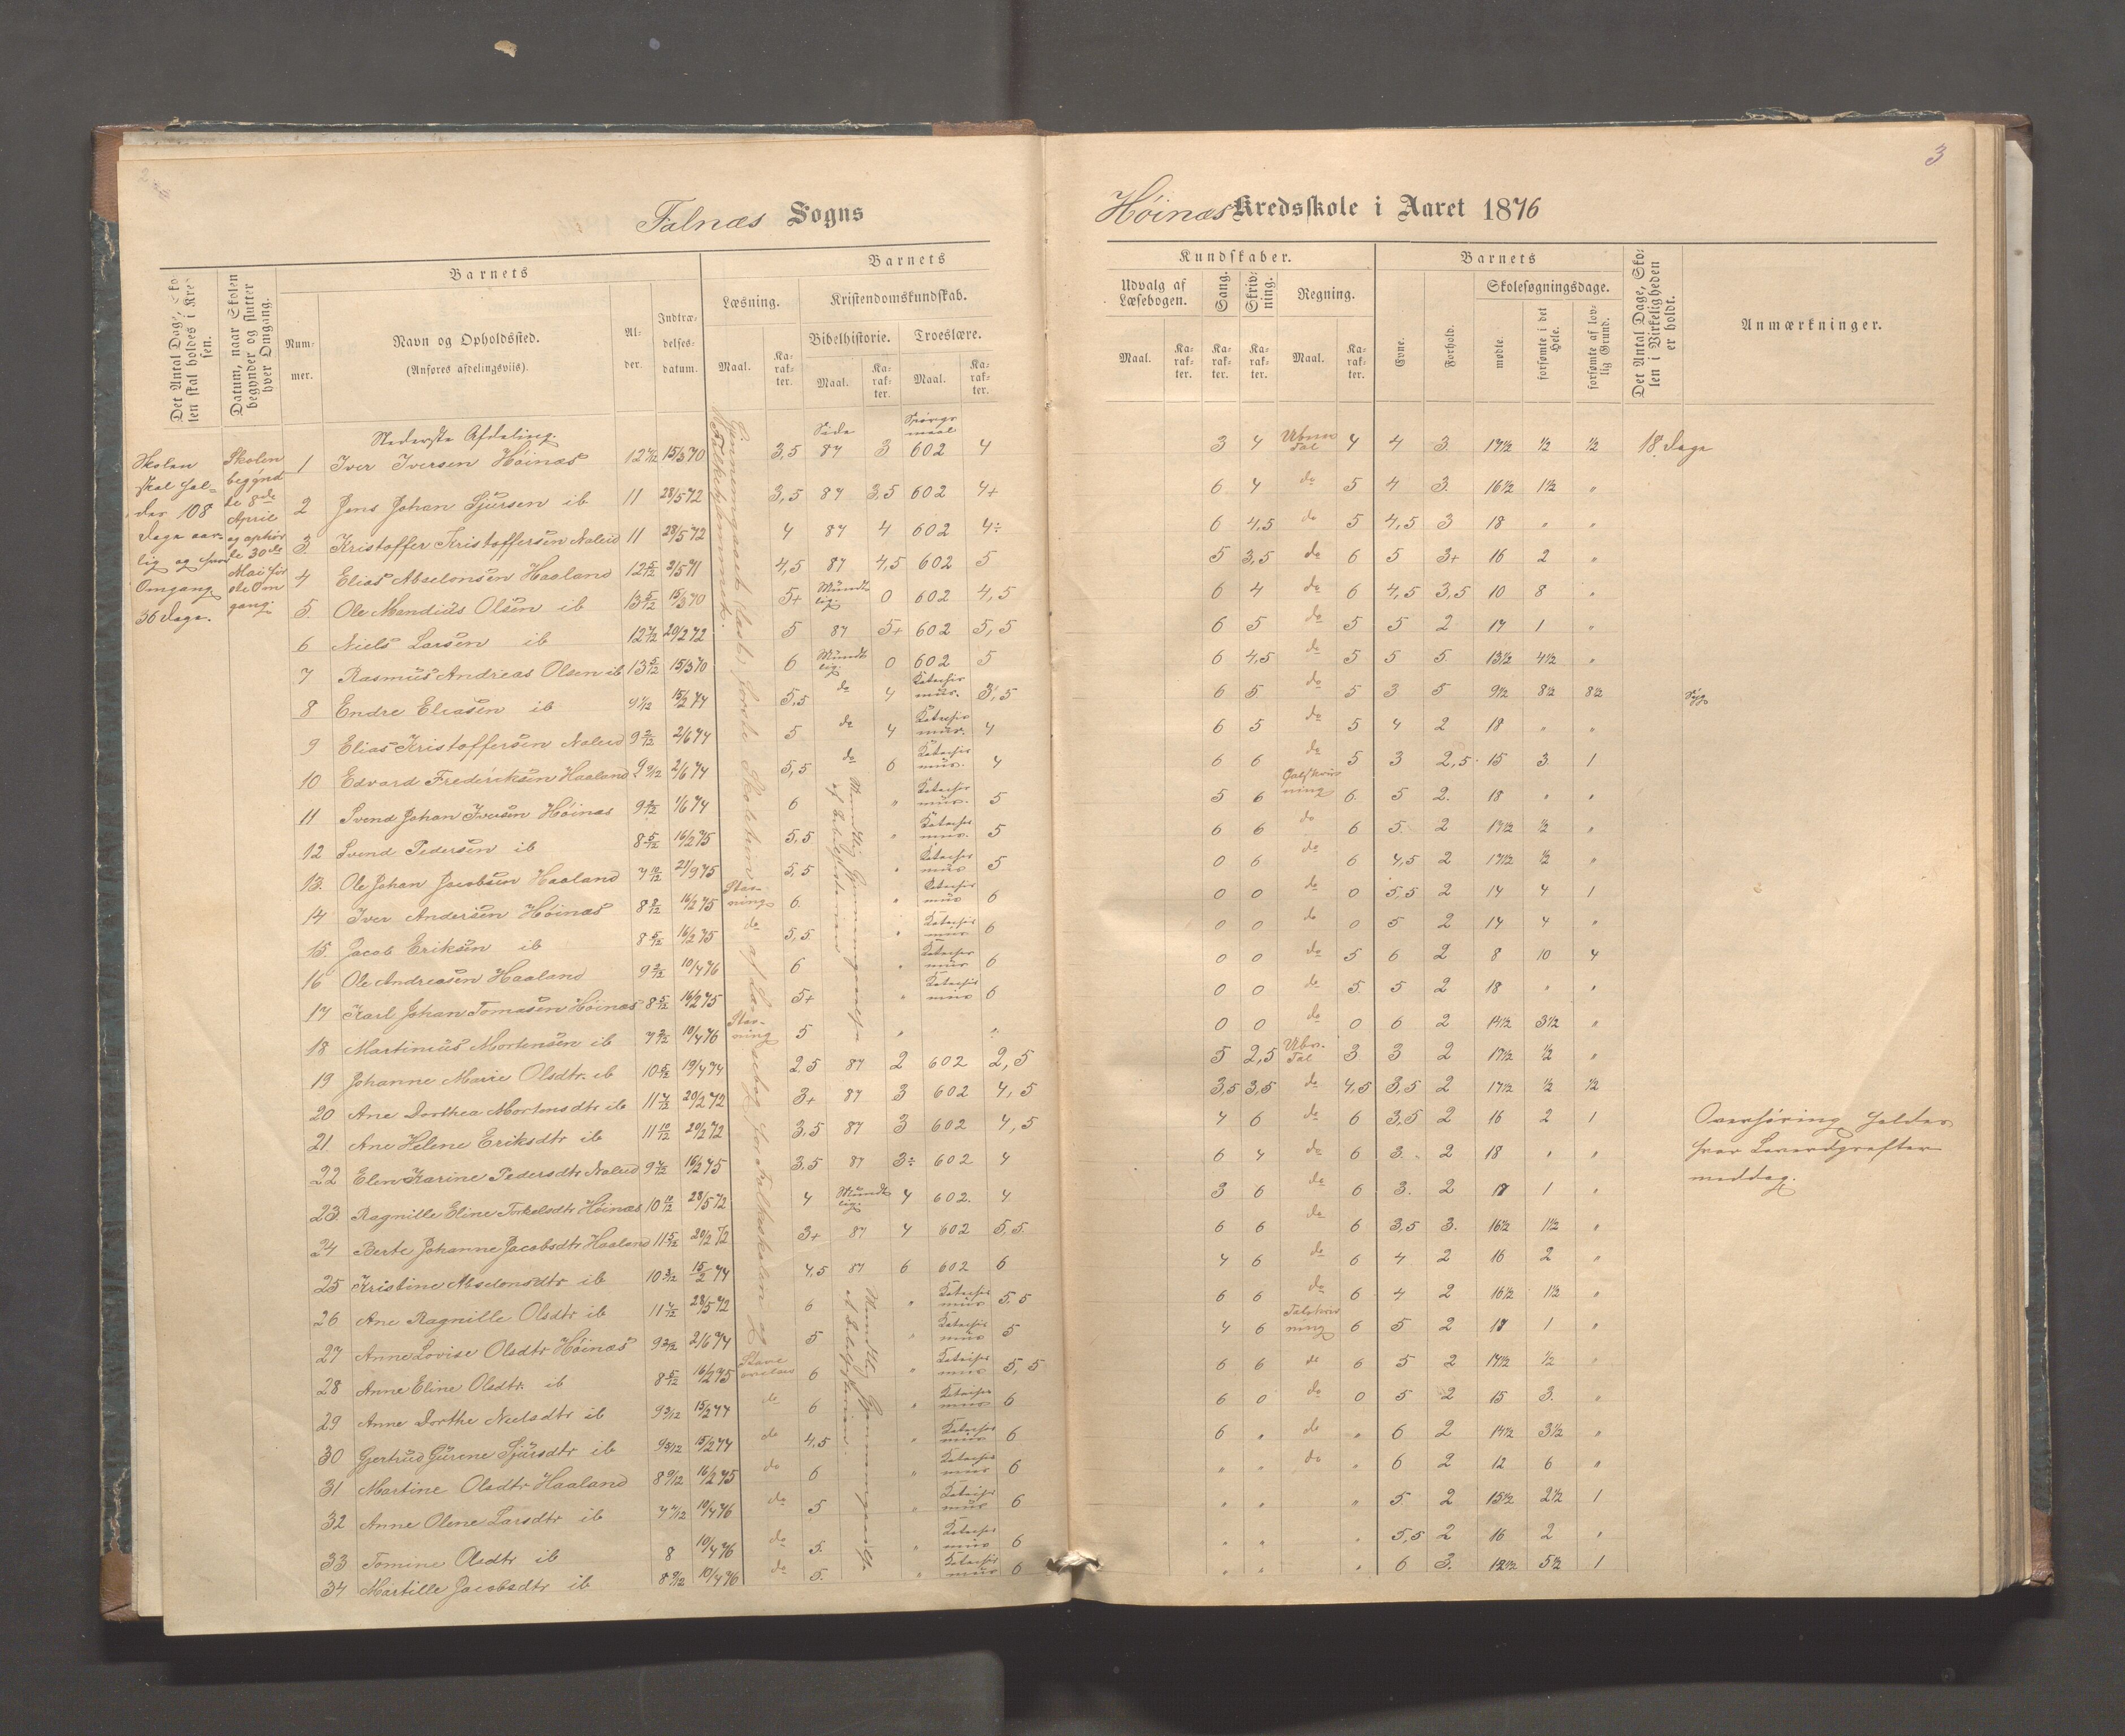 Falnæs Sogns
Høinæs Kredsskole i Aaret 1876
3
Det Antal Dage, Skolen skal holdes i Kredsen.
Datum, naar Skolen begynder og slutter hver Omgang.
Barnets
Nummer.
Navn og Opholdssted.
(Anføres afdelingsviis).
Alder.
Indtrædelsesdatum.
Barnets
Læsning.
Maal.
Karakter.
Kristendomskundskab.
Bibelhistorie.
Maal.
Karakter.
Troeslære.
Maal.
Karakter.
Kundskaber.
Udvalg af Læsebogen.
Maal.
Karakter.
Sang.
Karakter.
Skrivning.
Karakter.
Regning.
Maal.
Karakter.
Barnets
Evne.
Forhold.
Skolesøgningsdage.
mødte.
forsømte i det Hele.
forsømte af lovlig Grund.
Det Antal Dage, Skolen i Virkeligheden er holdt.
Anmærkninger.
Skolen
skal hol-
des 108
Dage aar-
lig og hver
Omgang
36 Dage.
Skolen
begynd
te 8de
April
og ophør
te 30te
Mai før
ste Om
gang.
Nederste Afdeling.
Side
Spørgs
maal
1 Iver Iversen Høinæs 12 7/12 15/3 70 3,5 87 3 602 4 3 4 Ubnn Tal 4 4 3. 17½ ½ ½ 18 Dage
2 Jens Johan Sjursen ib 11 28/5 72 3,5 87 3,5 602 4+ 6 4 do 5 4 3. 16½ 1½ "
3 Kristoffer Kristoffersen Naleid 11 28/5 72 4 87 4 602 4÷ 6 4,5 do 5 4,5 3 18 " "
4 Elias Abselonsen Haaland 12 5/12 2/5 71 4,5 87 4,5 602 5 5 3,5 do 6 5 3+ 16 2 "
5. Ole Mandius Olsen ib 13 5/12 15/3 70 5+ Mundt lig. 0 602 4,5 6 4 do 6 4,5 3,5 10 8 "
6 Niels Larsen ib 12 7/12 20/2 72 5 87 5+ 602 5,5 6 5 do 5 5 2 17 1 "
7 Rasmus Andreas Olsen ib 13 5/12 15/3 70 6 Mundt lig. 0 602 5 6 4,5 do 5 5 5 13½ 4½ "
8 Endre Eliasen ib 15/2 74 5,5 do 4 Katechis mus. 3,5 6 5 do 5 3 5 9½ 8½ 8½ Syg
9 Elias Kristoffersen Naleid 9 2/12 2/6 74 5 do 4 Katechis mus. 4 6 5 do 5 4 2 18 " "
10 Edvard Frederiksen Haaland 9 9/12 2/6 74 5,5 do 6 Katechis mus. 4 6 6 do 5 3 2,5 15 3 1
11 Svend Johan Iversen Høinæs 9 2/12 1/6 74 6 " Katechis mus. 5 5 6 Talskriv ning 6 5 2. 18 " "
12 Svend Pedersen ib 8 5/12 16/2 75 5,5 " Katechis mus. 5 6 6 do 6 5. 2 17½ ½ "
13. Ole Johan Jacobsen Haaland 7 10/12 21/9 75 5,5 " Katechis mus 5 0 6 do 6 4,5 2 17½ ½ "
14 Iver Andersen Høinæs 8 2/12 16/2 75 Stav- ning 6. " Katechis mus 6 0 0 do 0 5,5 2 14 4 1
15. Jacob Eriksen ib 8 5/12 16/2 75 do 5,5 " Katechis mus 6 0 0 do 0 5 2 14 4 "
16 Ole Andreasen Haaland 9 2/12 10/4 76 6 " Katechis mus 6 0 0 do 5 6 2 8 10 4
17 Karl Johan Tomasen Høinæs 8 5/12 16/2 75 5+ " Katechis mus 6 0 0 do 5 5 2 18 " "
18 Martinius Mortensen ib 7 2/12 10/4 76 Stav- ning 5 " " 0 0 do 0 6 2 14½ 3½ "
19 Johanne Marie Olsdtr. ib 10 5/12 19/4 74 2,5 87 2 602 2,5 5 2,5 Ubn. Tal 3 3 2 17½ ½ "
20 Ane Dorthea Mortensdtr ib 11 7/12 20/2 72 3+ 87 3 602 4,5 3,5 3,5 do 4,5 3,5 2 17½ ½ ½
21 Ane Helene Eriksdtr ib 11 10/12 20/2 72 3,5 87 3 602 4,5 4 6 do 6 3,5 2 16 2 1
22 Elen Karine Pedersdtr Naleid 9 7/12 16/2 75 3,5 87 3÷ 602 4 6 4 do 6 3. 2 18 " "
23 Ragnille Eline Torkelsdtr Høinæs 10 10/12 28/5 72 4 Mundt lig. 4 602. 4 3 6 do 6 3. 2 17 1 "
24 Berte Johanne Jacobsdtr Haaland 11 5/12 20/2 72 3+ 87 4 602 5,5. 6 6 do 6 3,5 3. 16½ 1½ "
25 Kristine Abselonsdtr ib 10 3/12 15/2 74 4,5 87 6 602 6 4 6 do 6 4 2 16 2 "
26 Ane Ragnille Olsdtr ib 11 7/12 28/5 72 6 " Katechis mus 5,5 6 6 do 6 4 2 16½ 1½ "
27 Anne Lovise Olsdtr Høinæs 9 2/12 2/6 74 5 " Katechis mus 5 4 6 Talskriv ning 6 5 2 17 1 "
28 Anne Eline Olsdtr. ib 8 5/12 16/2 75 6 " Katechis mus 5,5 6 6 do 6 5 2 17½ ½ "
29 Anne Dorthe Nielsdtr ib 9 3/12 15/2 74 do 6 " Katechis mus 6 6 0 do 0 5 2 15 3. "
30 Gjertrud Gurine Sjursdtr ib 9 3/12 15/2 74 do 4,5 " Katechis mus 6 6 " do " 6 2 14½ 3½ "
31 Martine Olsdtr Haaland 8 9/12 16/2 75 do 6 " Katechis mus 6 " " do " 6 2 12 6 "
32 Anne Olene Larsdtr ib 7 7/12 10/4 76 do 5 " Katechis mus 6 " " " 5 2 15½ 2½ 1
33 Tomine Olsdtr ib 8 10/4 76 do 5. " Katechis mus 6 " " " 5,5 2 16 2 "
34 Martille Jacobsdtr ib 8 9/12 10/4 76 do 5. " Katechis mus 6 " " " 6 3. 12½ 5½ 1
Overhøring holdes
hver Løverdagsefter
meddag.